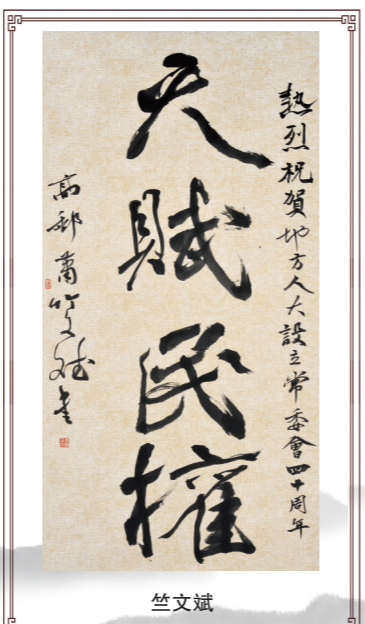 熱烈祝賀地方人大設立常委會四十周年
天賦民權
高郵 蕭竺文斌書
竺文斌